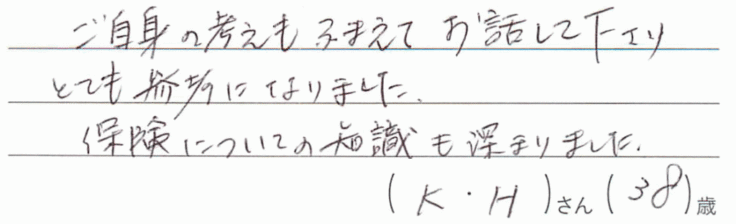 ご自身の考えもふまえてお話して下さり
とても参考になりました。
保険についての知識も深まりました。
(K・H)さん(38)歳